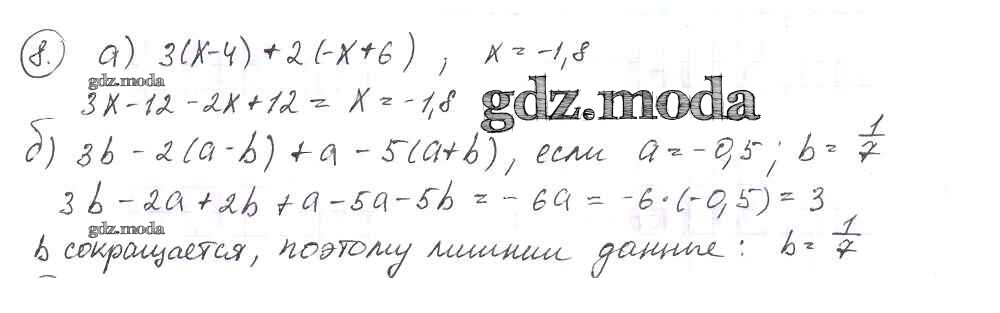 8. а) 3(x-4) + 2(-x+6) , x = -1,8
gdz.moda
3x - 12 - 2x + 12 = x = -1,8
gdz.moda
б) 3b - 2(a-b) + a - 5(a+b), если a = -0,5; b = 1/7
3b - 2a + 2b + a - 5a - 5b = - 6a = -6·(-0,5) = 3
gdz.moda
b сокращается, поэтому лишнии данные: b = 1/7